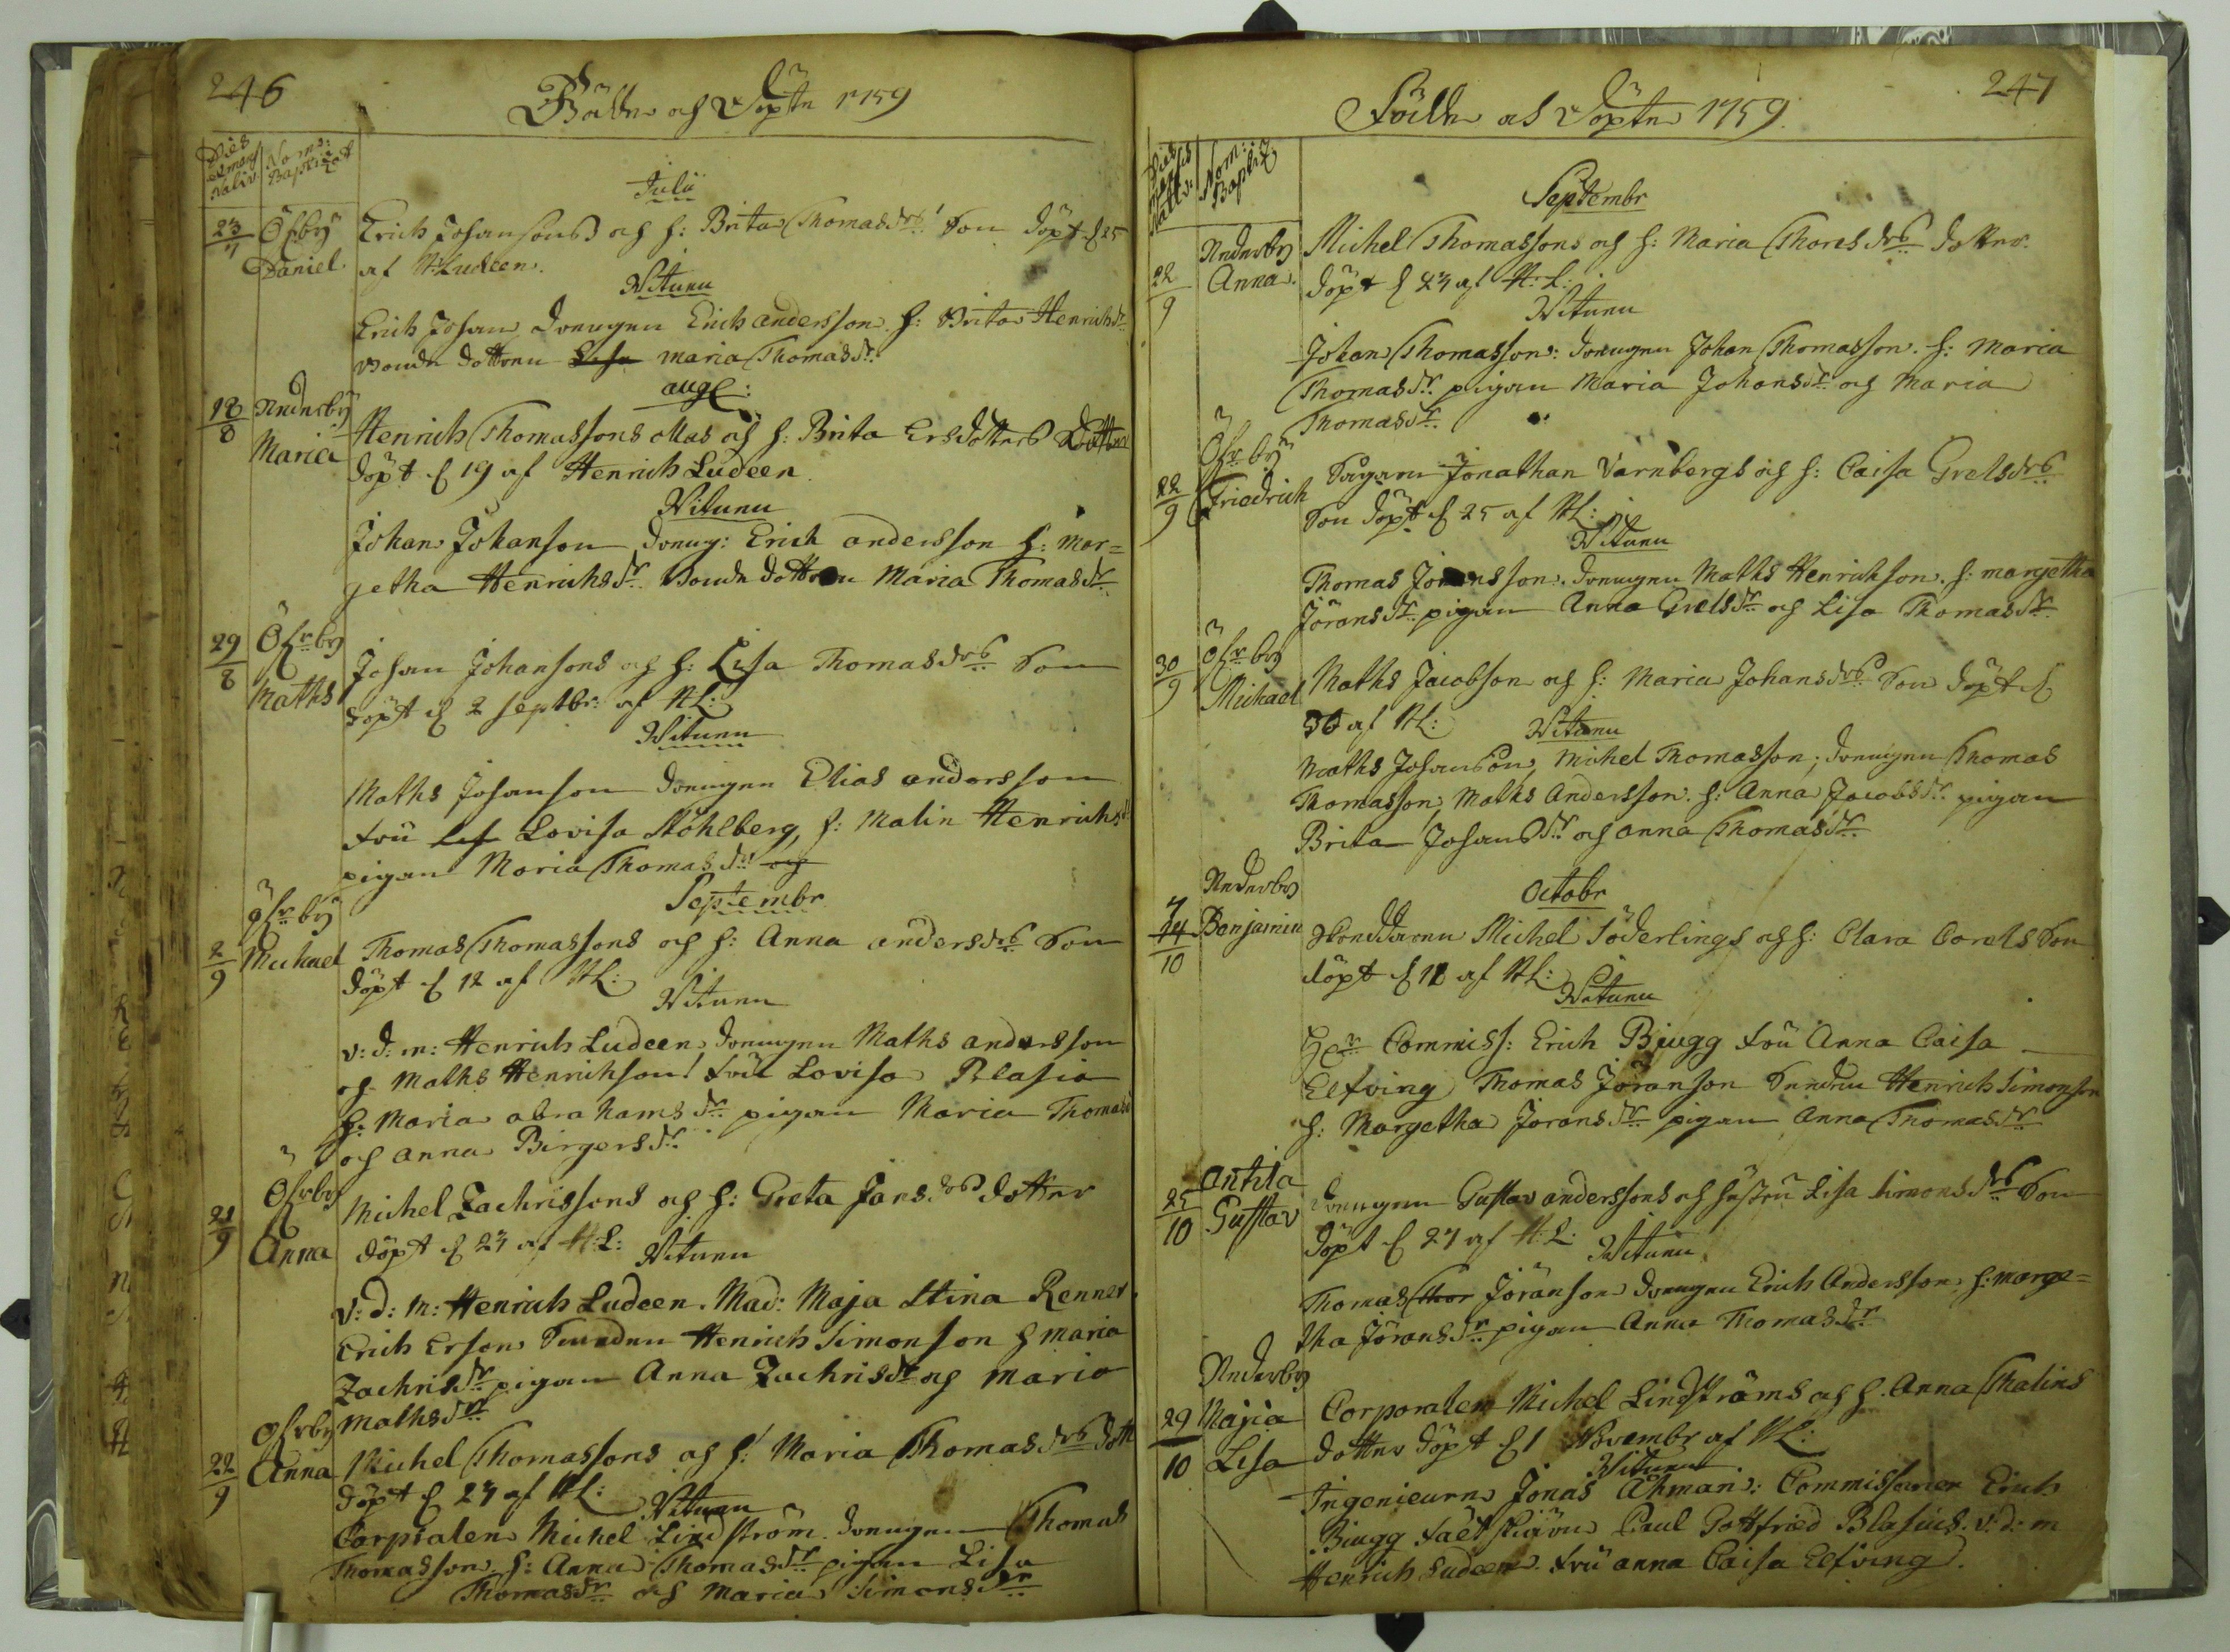 246
Födde och Döpte 1759
Dies & mens Nativ.
Nomē: Baptizat
Julii
23/7 Öfby Erich Johansons och h: Brita Thomasdrs Son döpt d 25
Daniel af H: Ludeen.
Witnen
Erich Johan drengen Erich andersson. h: Brita Henrichsdr
bonde dottren Lisa maria Thomasdr.
aug:
18/8 Nederby
Maria Henrich Thomassons Mas och h: Brita Ersdotters Dotter
döpt d 19 af Henrich Ludeen.
Witnen
Johan Johanson, dreng: Erich andersson h: Mar=
getha Henrichsdr. Bonde dottren Maria Thomasdr
29/8 Öfrby
Maths
Johan Johansons och h: Lisa Thomasdrs Son
döpt d 2 septbr: af HL:
Witnen
Maths Johanson drengen Elias andersson
fru Lis Lovisa Ståhlberg, h: Malin Henrichsdr
pigan Maria Thomasdr och
Septembr
Öfrby
2/9 Michael Thomas Thomassons och h: Anna andersdrs Son
döpt d 12 af HL:
Witnen
v: d: m: Henrich Ludeen, drengen Maths andersson
och Maths Henrichson! fru Lovisa Blasia
h: Maria abrahamsdr pigan Maria Thomasd
och anna Birgersdr.
Öfrby
21/9 Anna
Michel Zachrissons och h: Greta Jansdrs dotter
döpt d 23 af H:L:
Witnen
v: d: m: Henrich Ludeen. Mad: Maja Stina Renner.
Erich Erson Smeden Henrich Simonson h maria
Zachrisdr. pigan Anna Zachrisdr och maria
Mathsdr
Öfrby
22/9 Anna Michel Thomassons och h: Maria Thomasdrs dott
döpt d 23 af HL:
Witnen
Corpralen Michel Lindström. drengen Thomas
Thomasson. h: Anna Thomasdr pigan Lisa
Thomasdr och Maria Simonsdr
247
Födde och Döpte 1759.
Dies mensis Nativ:
Nom: Baptiz
Septembr
Nederby
22/9 Anna.
Michel Thomassons och h: Maria Thoresdrs dotter.
döpt d 23 af H: L:
Witnen
Johan Thomasson: drengen Johan Thomasson. h: Maria
Thomasdr. pigan Maria Johansdr och Maria
Thomasdr.
Öfrby
22/9 Friedrich
Sågaren Jonathan Varnbergs och h: Caisa Grelsdrs
Son döpt d 25 af HL:
Witnen
Thomas Joransson. drengen Maths Henrichson. h: margetha
Joransdr. pigan Anna Grelsdr och Lisa Thomasdr
Öfrby
30/9 Michael
Maths Jacobson och h: Maria Johansdrs Son döpt d
30 af HL:
Witnen
Maths Johanson, Michel Thomasson, drengen Thomas
Thomasson, Maths Andersson. h: Anna Jacobsdr. pigan
Brita Johansdr och anna Thomasdr.
Nederby
Octobr
7 14/10 Benjamin
Michel Söderlings och h: Clara Carels Son
döpt d 12 af HL:
Witnen
Hr: Commiss: Erich Biugg fru Anna Caisa
Elfving Thomas Joranson Smeden Henrich Simonson
h: Margetha Joransdr pigan Anna Thomasdr
Antila
25/10 Gustav
Drengen Gustav anderssons och hustru Lisa Simonsdrs Son
döpt d 27 af H: L:
Witnen
Thomas Thor Joranson drengen Erich Andersson. h: marge=
tha Joransdr. pigan Anna Thomasdr
Nederby
29/10 Majia Lisa
Corporalen Michel Lindströms och h. Anna Thalins
dotter döpt d 1 Novembr af HL:
Witnen
Ingenieuren Jonas Åhman: Commissarien Erich
Biugg Paul Gottfried Blasius. v: d: m
Henrich Ludeen. fru anna Caisa Elfving.